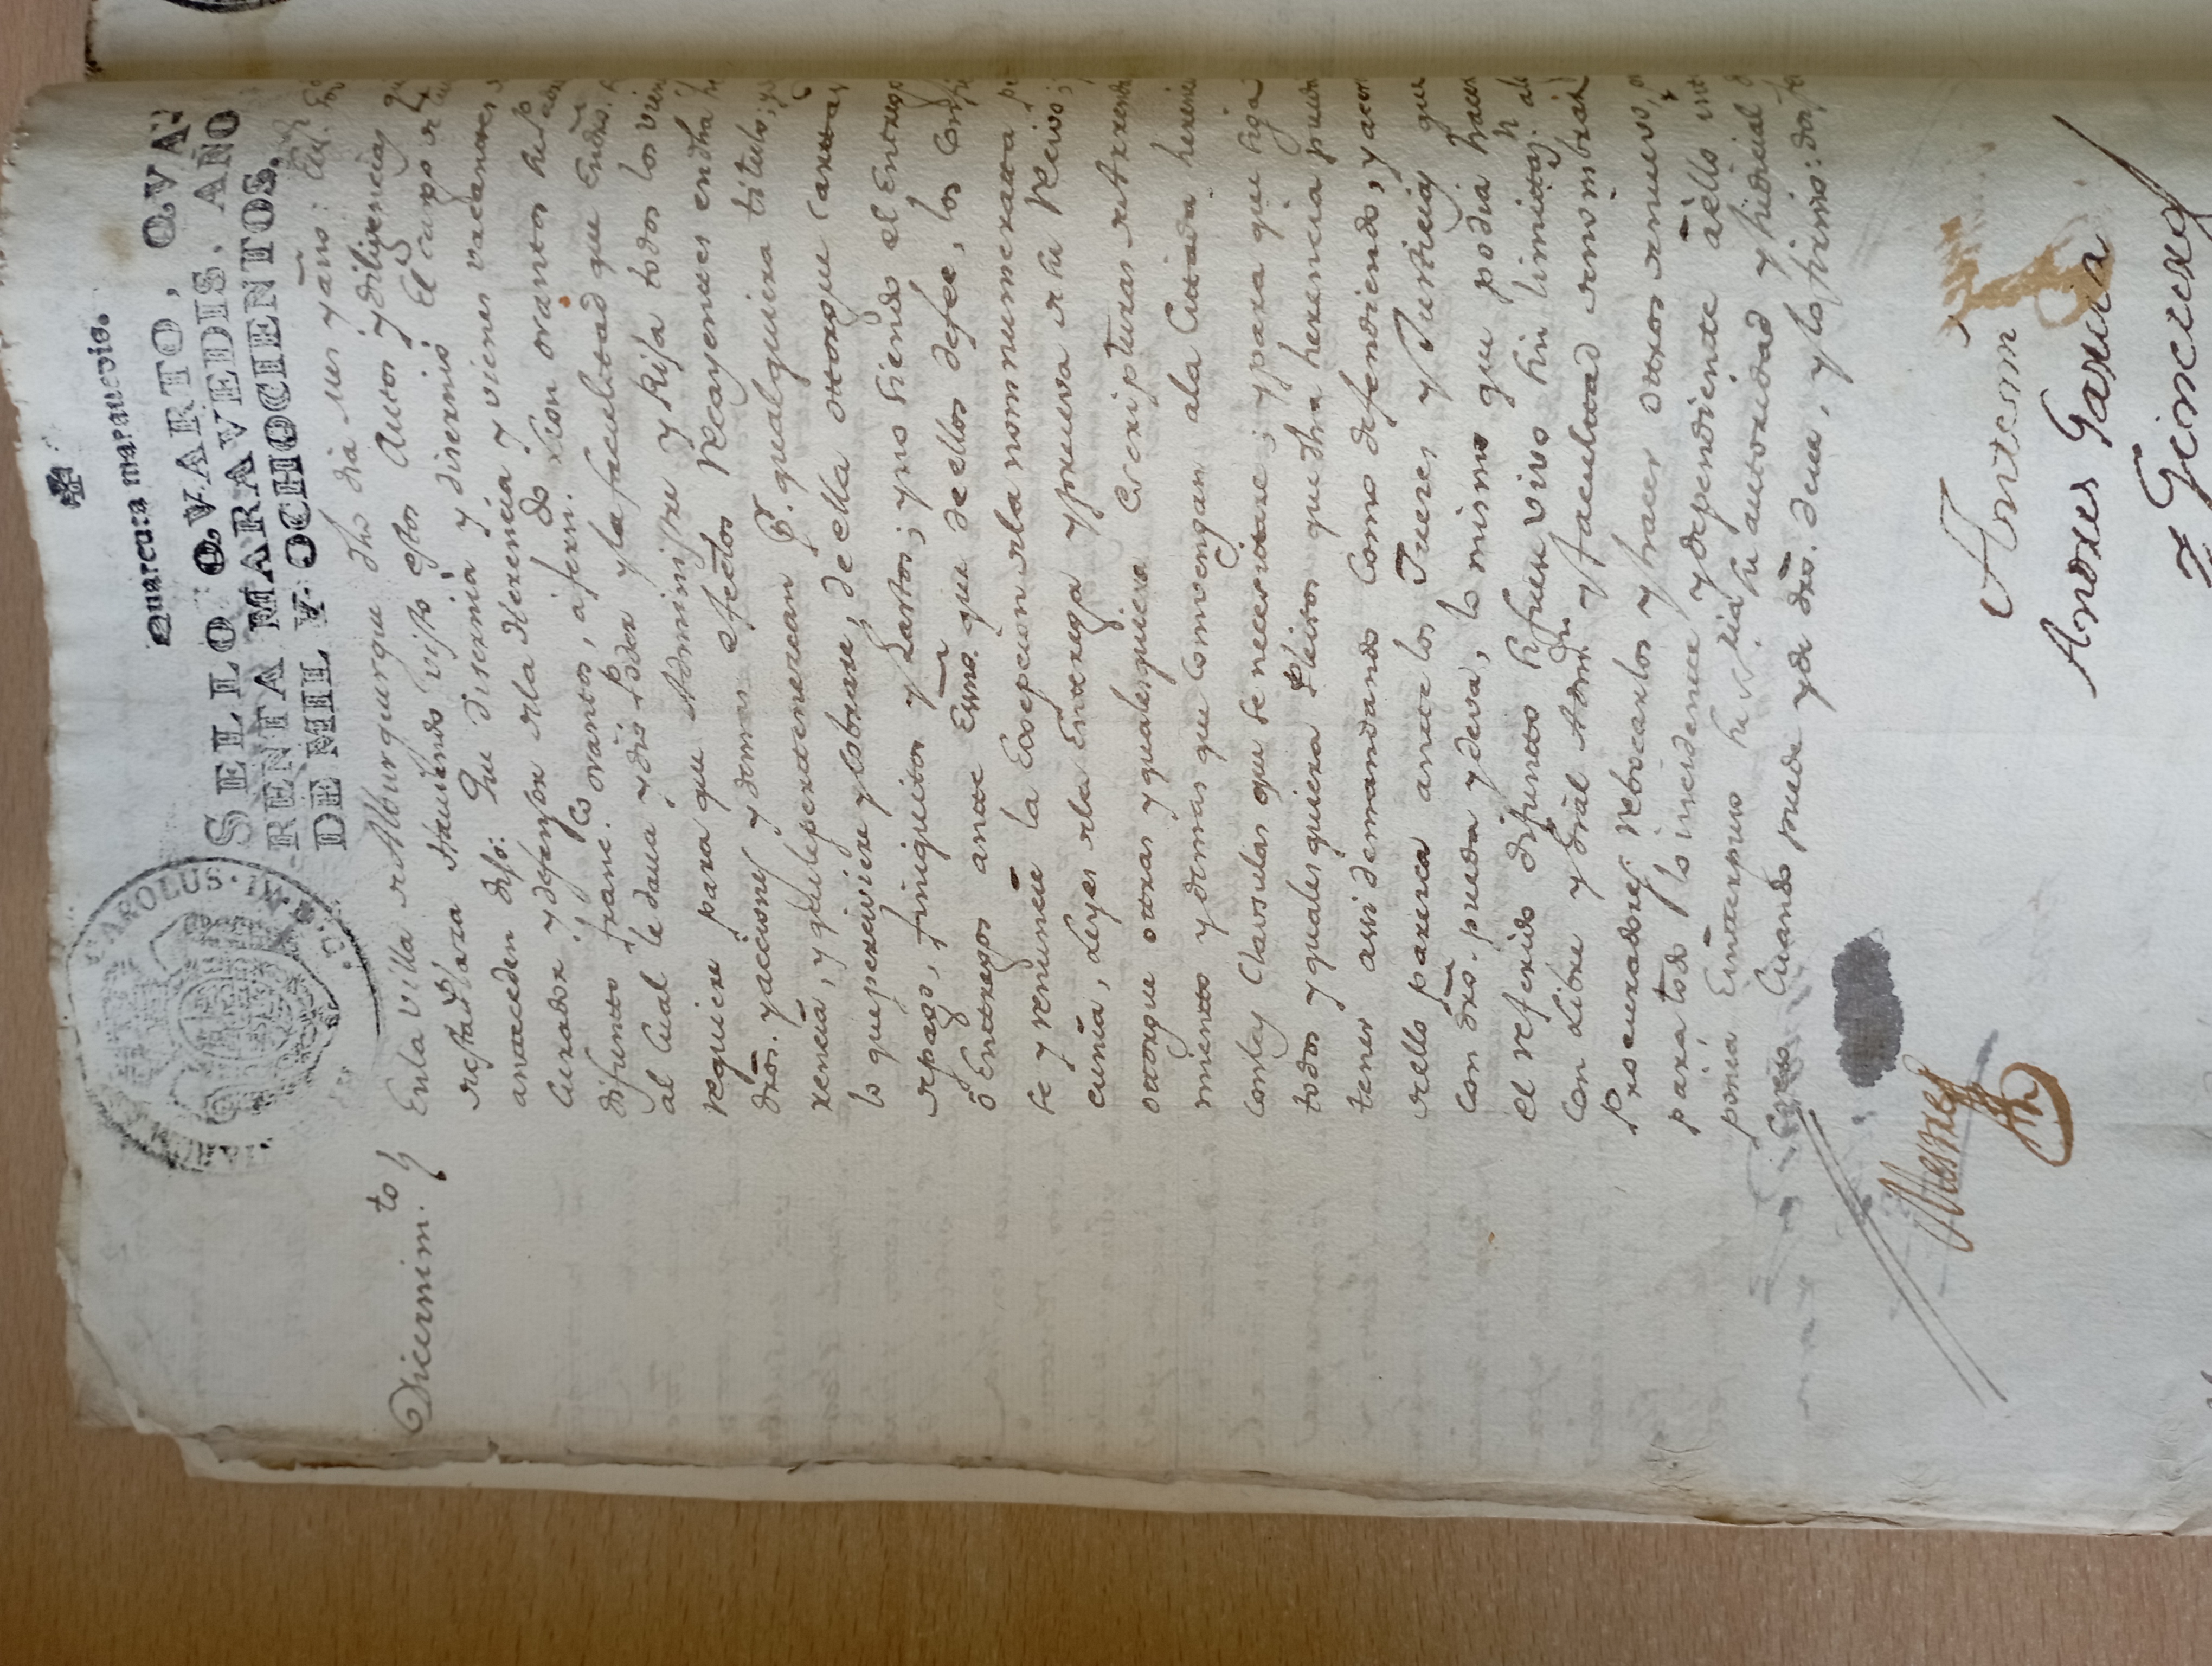 Quarenta maravedis.
SELLO QVARTO, QVA-
RENTA MARAVEDIS, AÑO
DE MIL Y OCHOCIENTOS.
CAROLUS·IV·D·G·
Dicernim.to
En la Villa de Alburquerque dho dia mes y año: El Sr.
de esta Plaza Haviendo visto estos Autos y diligencias q
antteceden dijo: Que disernia y disernió El cargo de
Curador y defensor de la Herencia y vienes vacanttes
difuntto franc.co orantos, á fern.do Leon orantos su Padre
al Cual le dava y dió Poder y la facultad que En dro.
requiere para que Administre y Rija todos los vien
dros. y acciones y demas efectos recayenttes en dha he
rencia, y que le perttenezcan p.r qualquiera titulo; y
lo que perciviere y cobrare, de ella ottorgue Carttas
de pago, finiquitos y Lastos; y no siendo el Entrego
ó Enttregos antte Essno. que de ellos de fee, los Confie
se y renuncie la Excepcion de la nomnumeratta pe
cunia, Leyes de la Enttrega y prueva de su Recivo;
ottorgue ottras y qualesquiera Escripturas de Arrenda
mientto y demas que comvengan a la Cittada herenci
con las Clausulas que se necesittare; y para que siga
todos y qualesquiera Pleitos que dha herencia pueda
tener assi demandando Como defendiendo, y acer
de ello paresca antte los Jueces y Justicias que
con dro. pueda y deva, lo mismo que podia hacer
el referido difuntto si fuese vivo sin limittaz.n al
con Libre y Gral Adm.n y facultad de nombrar
Procuradores, rebocarlos y hacer ottros de nuevo,
para todo lo incidentte y dependientte á ello int
ponia E intterpuso su Sria su autoridad y judicial
creto Cuando puede y de dro. deve, y lo firmo: doi fe
Antemi
Andres Garcia
y Ginовés